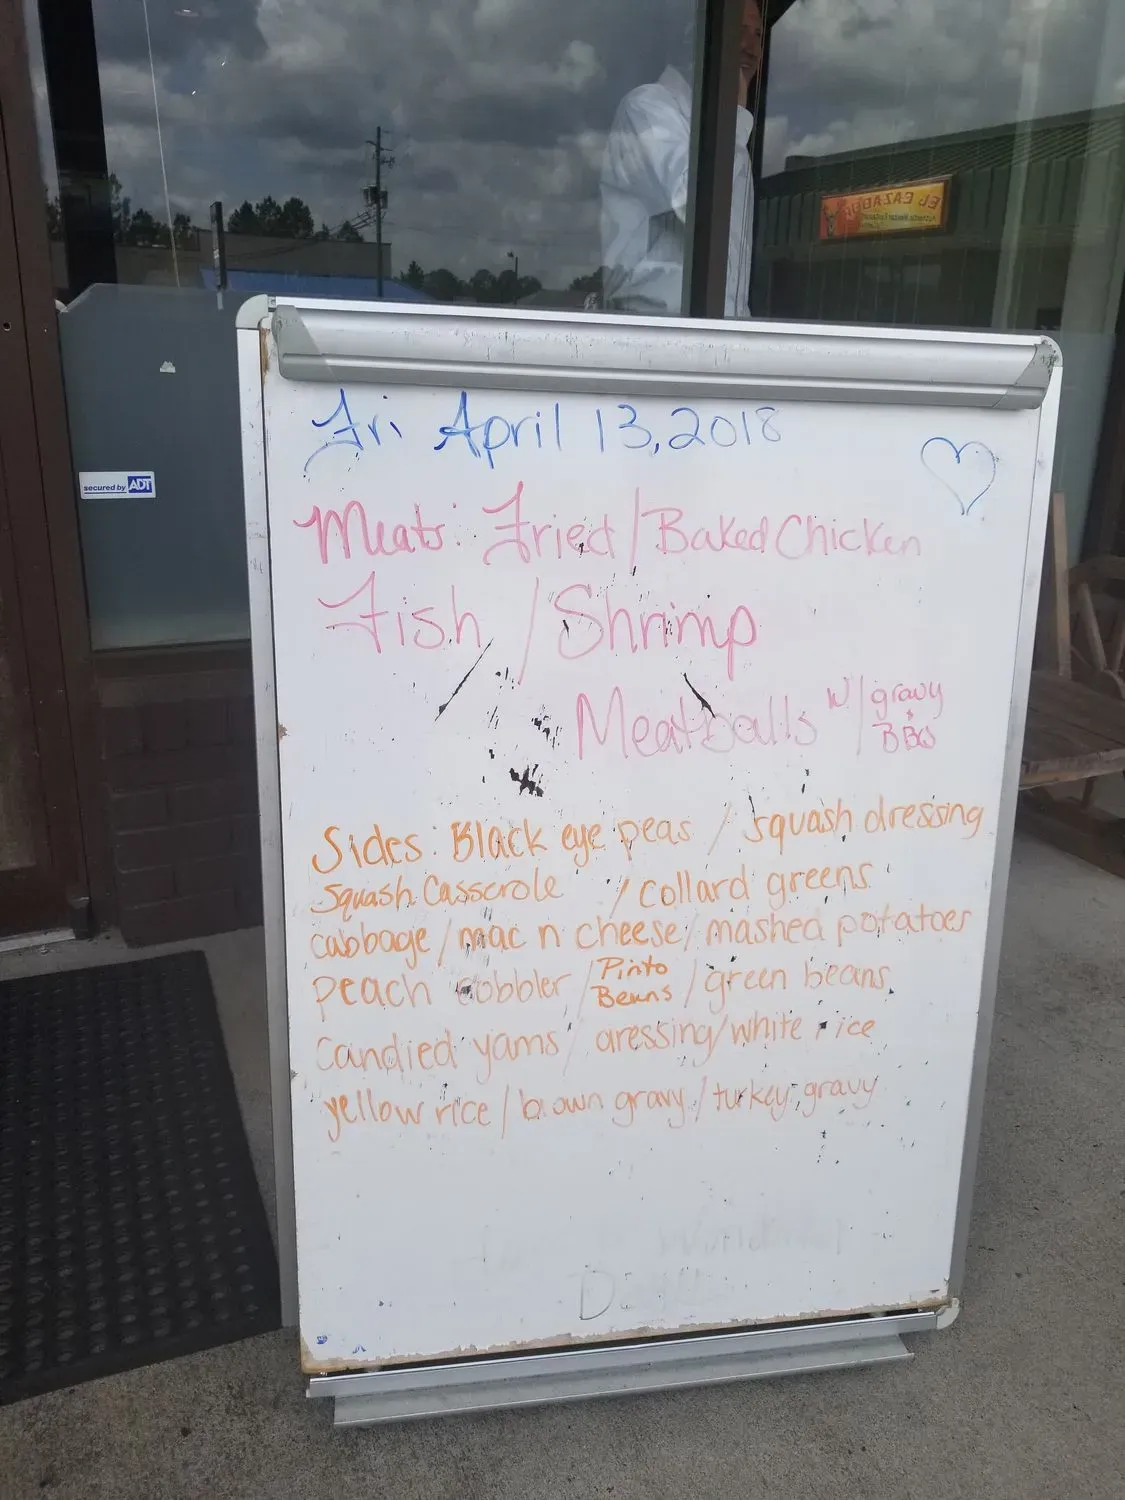 EL CAZADOR
secured by ADT
Fri April 13, 2018
Meats: Fried/Baked Chicken
Fish / Shrimp
Meatballs w/ gravy
BBQ
Sides: Black eye peas / squash dressing
Squash Casserole / collard greens
cabbage/mac n cheese/mashed potatoes
peach cobbler / Pinto Beans / green beans
Candied yams / dressing/white rice
yellow rice / brown gravy / turkey gravy